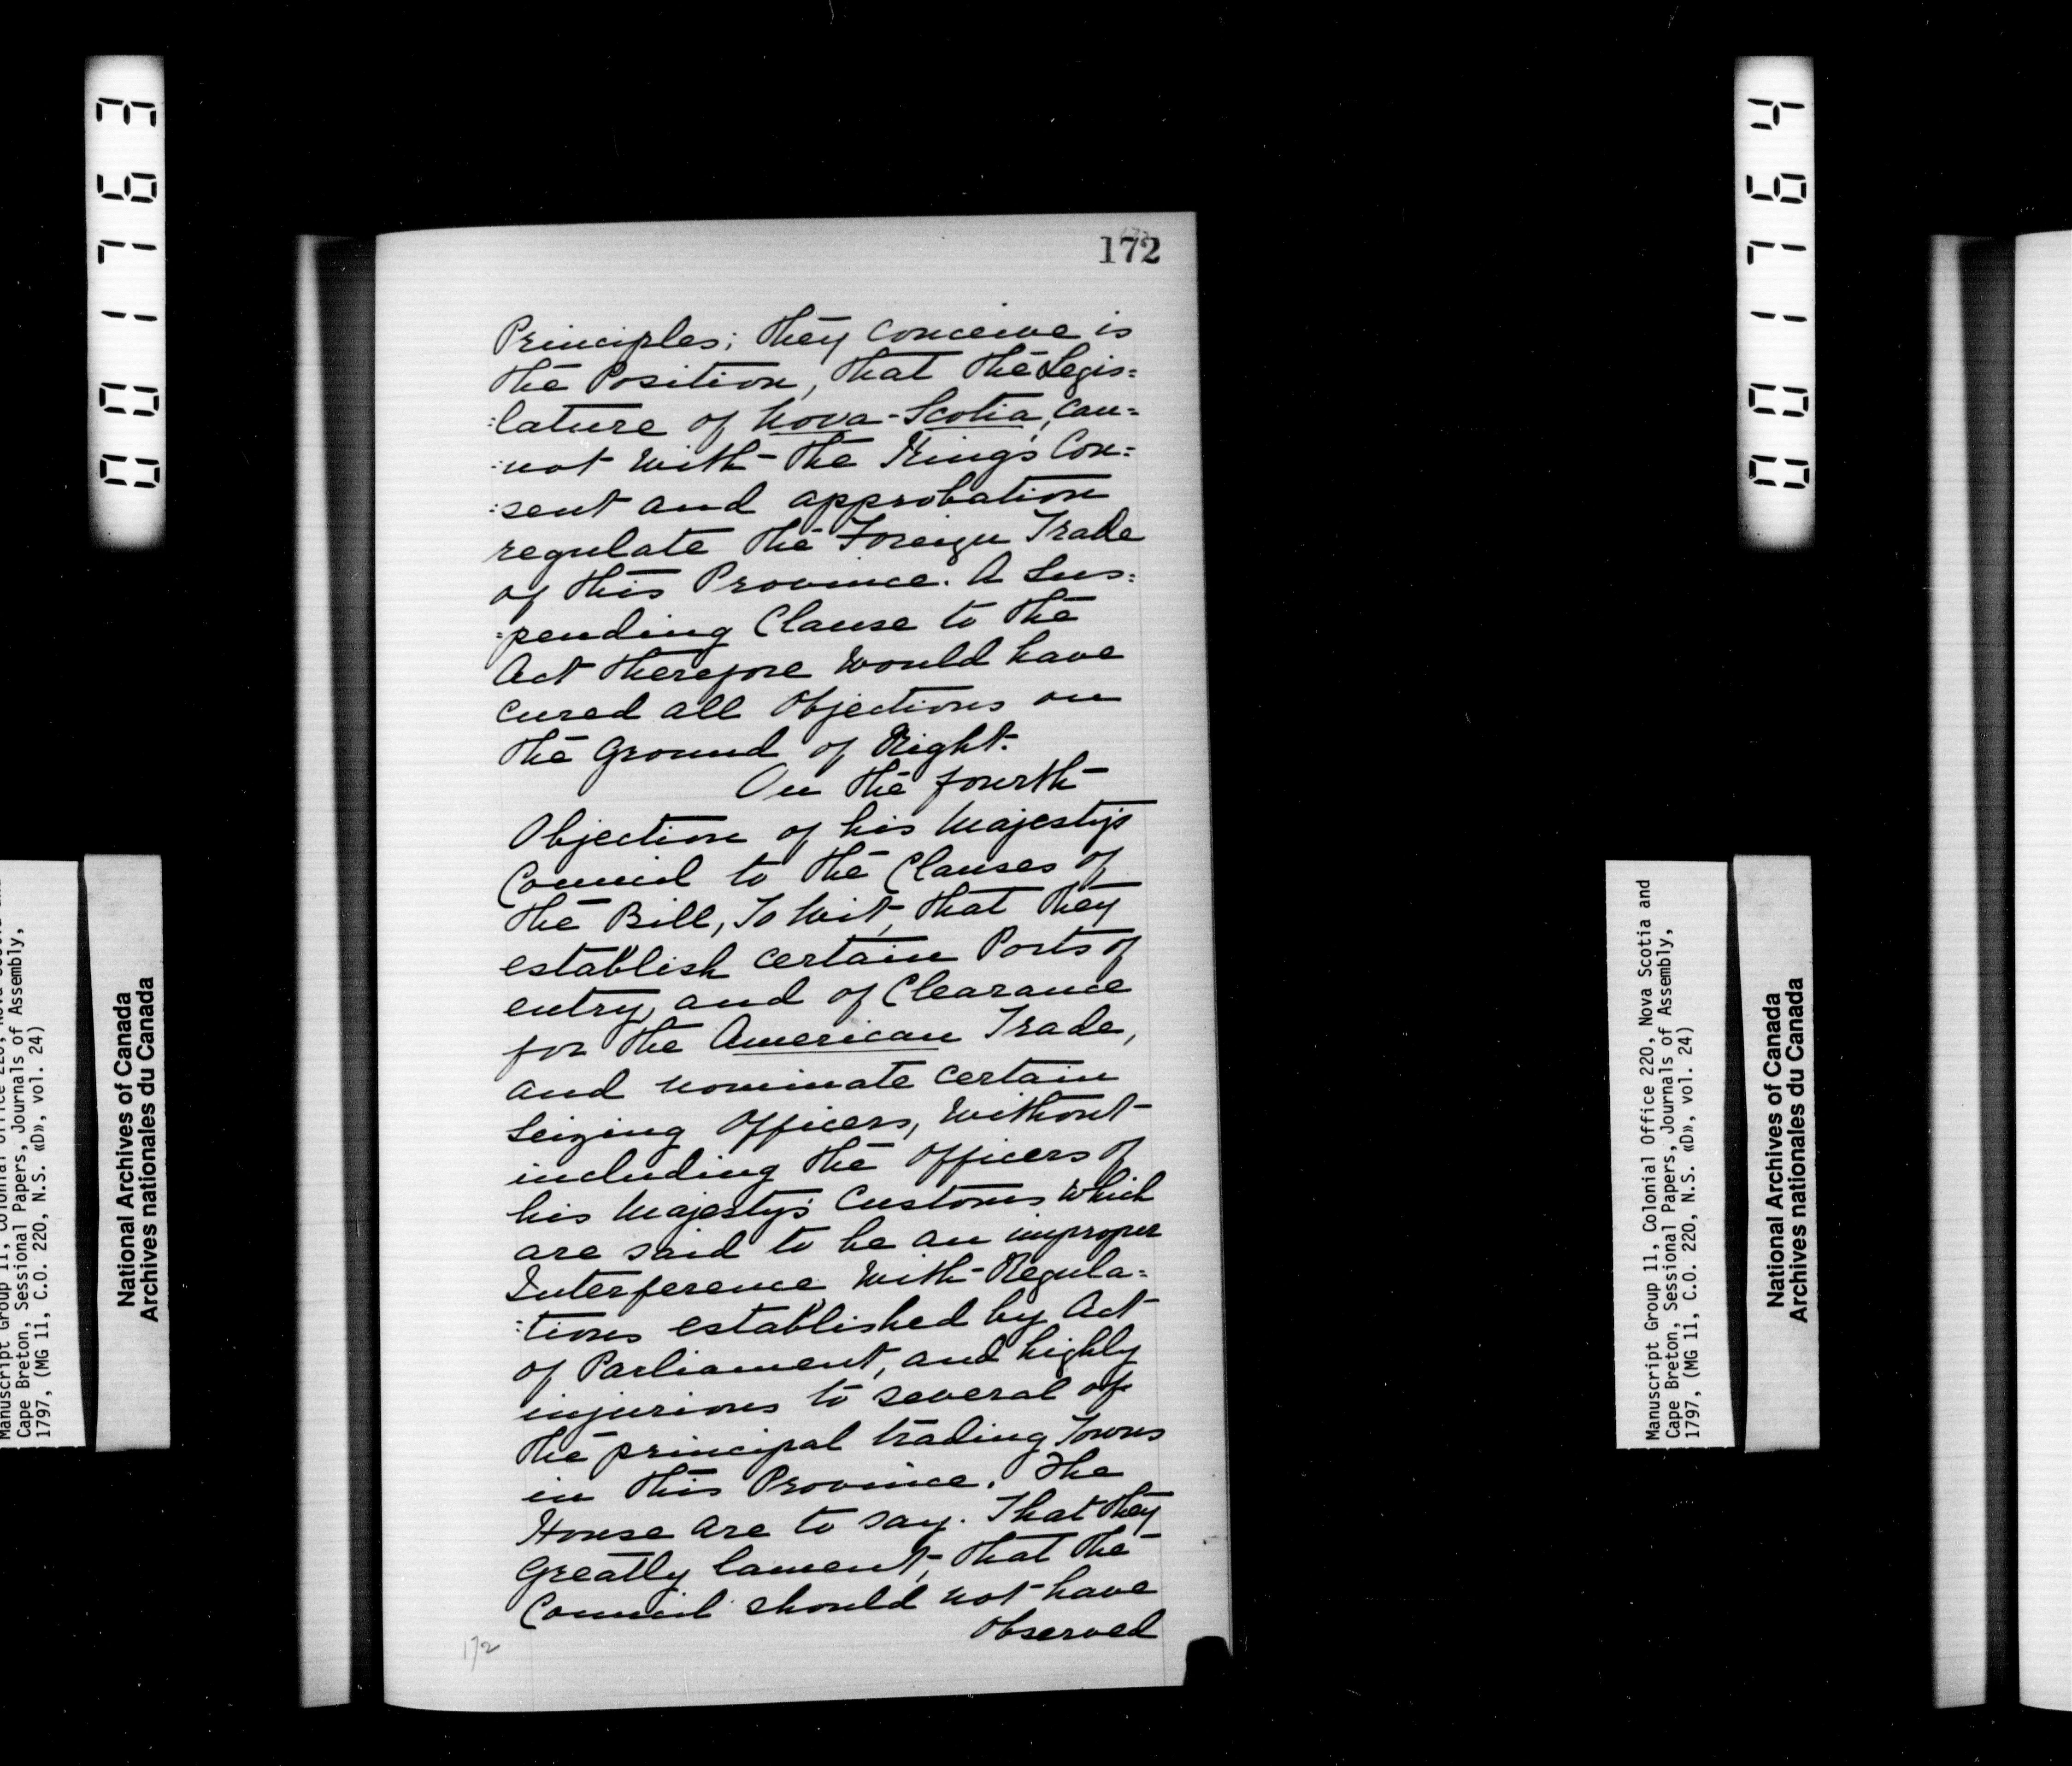 001763
172
Principles; they conceive is
the Position, that the Legis=
:lature of Nova-Scotia, Can=
:not with the King's Con=
:sent and approbation
regulate the Foreign Trade
of this Province. A Sus=
=pending Clause to the
Act therefore would have
cured all Objections on
the Ground of Right.
On the fourth
Objection of his Majesty's
Council to the Clauses of
the Bill, To Wit, that they
establish certain Ports of
entry, and of Clearance
for the American Trade,
and nominate certain
Seizing Officers, Without
including the Officers of
his Majesty's Customs which
are said to be an improper
Interference with Regula=
:tions established by Act
of Parliament, and highly
injurious to several of
the principal trading Towns
in this Province. The
House are to say. That they
Greatly lament, that the
Council should not have
Observed
172
Cape Breton, Sessional Papers, Journals of Assembly,
1797, (MG 11, C.O. 220, N.S. «D», vol. 24)
National Archives of Canada
Archives nationales du Canada
001764
Manuscript Group 11, Colonial Office 220, Nova Scotia and
Cape Breton, Sessional Papers, Journals of Assembly,
1797, (MG 11, C.O. 220, N.S. «D», vol. 24)
National Archives of Canada
Archives nationales du Canada